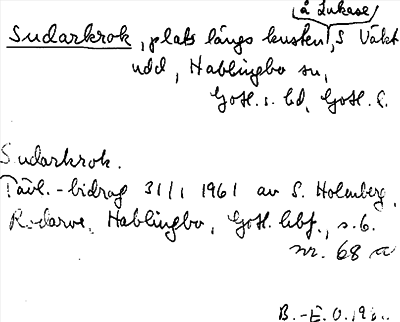 å Lukase
Sudarkrok, plats längs kusten, S Väkt
udd, Hablingbo sn,
Gotl. s. hd, Gotl. l.
Sudarkrok.
Tävl.-bidrag 31/1 1961 av S. Holmberg,
Rodarve, Hablingbo, Gotl. hbf., s. 6.
nr. 68 a
B.-E. O. 196